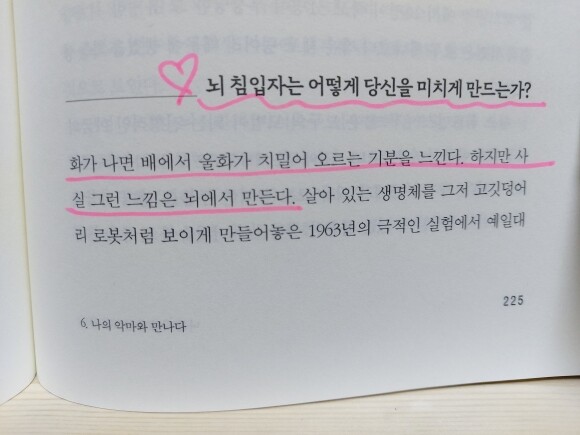 뇌 침입자는 어떻게 당신을 미치게 만드는가?
화가 나면 배에서 울화가 치밀어 오르는 기분을 느낀다. 하지만 사
실 그런 느낌은 뇌에서 만든다. 살아 있는 생명체를 그저 고깃덩어
리 로봇처럼 보이게 만들어놓은 1963년의 극적인 실험에서 예일대
225
6. 나의 악마와 만나다